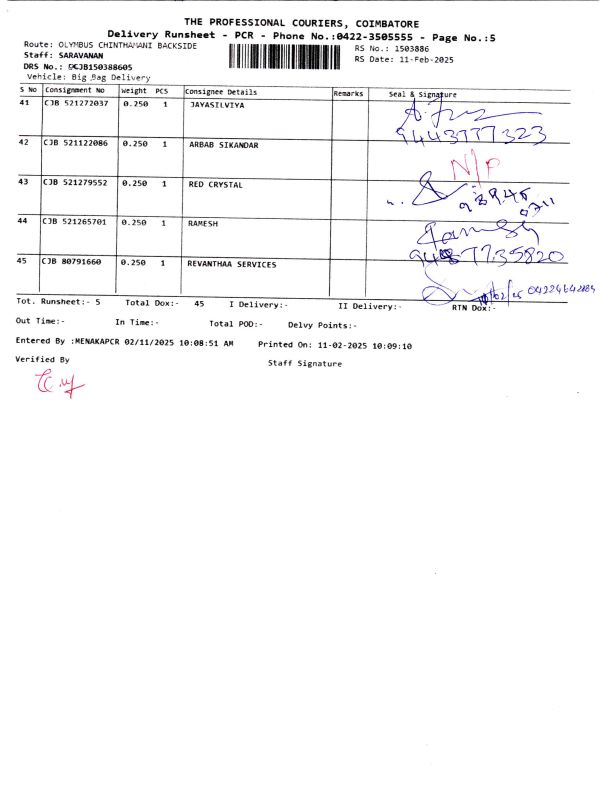 THE PROFESSIONAL COURIERS, COIMBATORE
Delivery Runsheet - PCR - Phone No.:0422-3505555 - Page No.:5
Route: OLYMBUS CHINTHAMANI BACKSIDE
RS No.: 1503886
Staff: SARAVANAN
RS Date: 11-Feb-2025
DRS No.: DCJB150388605
Vehicle: Big Bag Delivery
S No Consignment No Weight PCS Consignee Details Remarks Seal & Signature
41 CJB 521272037 0.250 1 JAYASILVIYA
9443777323
42 CJB 521122086 0.250 1 ARBAB SIKANDAR N/P
43 CJB 521279552 0.250 1 RED CRYSTAL
44 CJB 521265701 0.250 1 RAMESH
45 CJB 80791660 0.250 1 REVANTHAA SERVICES
Tot. Runsheet:- 5 Total Dox:- 45 I Delivery:- II Delivery:- RTN Dox:-
Out Time:- In Time:- Total POD:- Delvy Points:-
Entered By :MENAKAPCR 02/11/2025 10:08:51 AM Printed On: 11-02-2025 10:09:10
Verified By Staff Signature